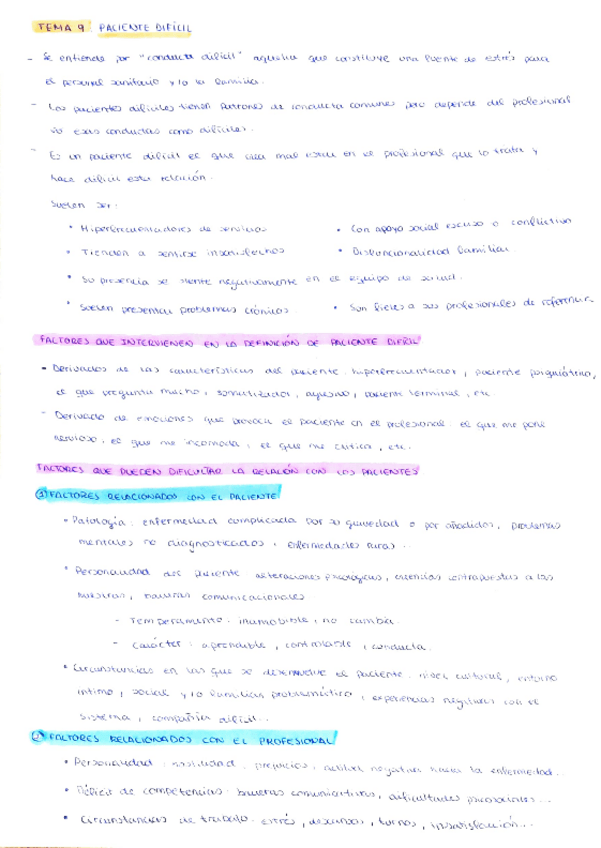 TEMA 9 PACIENTE DIFÍCIL
- Se entiende por "conducta difícil" aquella que constituye una fuente de estrés para
el personal sanitario y/o la familia.
- Los pacientes difíciles tienen patrones de conducta comunes pero depende del profesional
vir esas conductas como difíciles.
- Es un paciente difícil el que crea mal estar en el profesional que lo trata y
hace difícil esta relación.
Suelen ser:
• Hiperfrecuentadores de servicios
• Con apoyo social escaso o conflictivo
• Tienden a sentirse insatisfechos
• Disfuncionalidad familiar
• Su presencia se siente negativamente en el equipo de salud.
• Suelen presentar problemas crónicos
• Son fieles a sus profesionales de referencia
FACTORES QUE INTERVIENEN EN LA DEFINICIÓN DE PACIENTE DIFÍCIL
- Derivados de las características del paciente: hiperfrecuentador, paciente psiquiátrico,
el que pregunta mucho, somatizador, agresivo, paciente terminal, etc
- Derivado de emociones que provoca el paciente en el profesional: el que me pone
nervioso, el que me incomoda, el que me critica, etc.
FACTORES QUE PUEDEN DIFICULTAR LA RELACIÓN CON LOS PACIENTES
① FACTORES RELACIONADOS CON EL PACIENTE
• Patología: enfermedad complicada por su gravedad o por añadidos, problemas
mentales no diagnosticados, enfermedades raras...
• Personalidad del paciente: alteraciones psicológicas, creencias contrapuestas a las
nuestras, barreras comunicacionales
- Temperamento: inamobible, no cambia.
- Carácter: aprendible, controlable, conducta.
• Circunstancias en las que se desenvuelve el paciente: nivel cultural, entorno
íntimo, social y/o familiar problemático, experiencias negativas con el
sistema, compañía difícil...
② FACTORES RELACIONADOS CON EL PROFESIONAL
• Personalidad: hostilidad, prejuicios, actitud negativa hacia la enfermedad.
• Déficit de competencias: barreras comunicativas, dificultades psicosociales...
• Circunstancias de trabajo: estrés, descanso, turnos, insatisfacción...